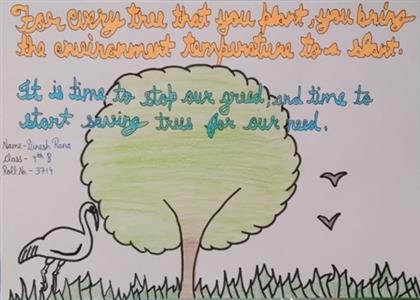 For every tree that you plant, you bring
the environment temperature to a slant.
It is time to stop our greed, and time to
start saving trees for our need.
Name - Dinesh Rana
Class - 9th B
Roll No - 3714